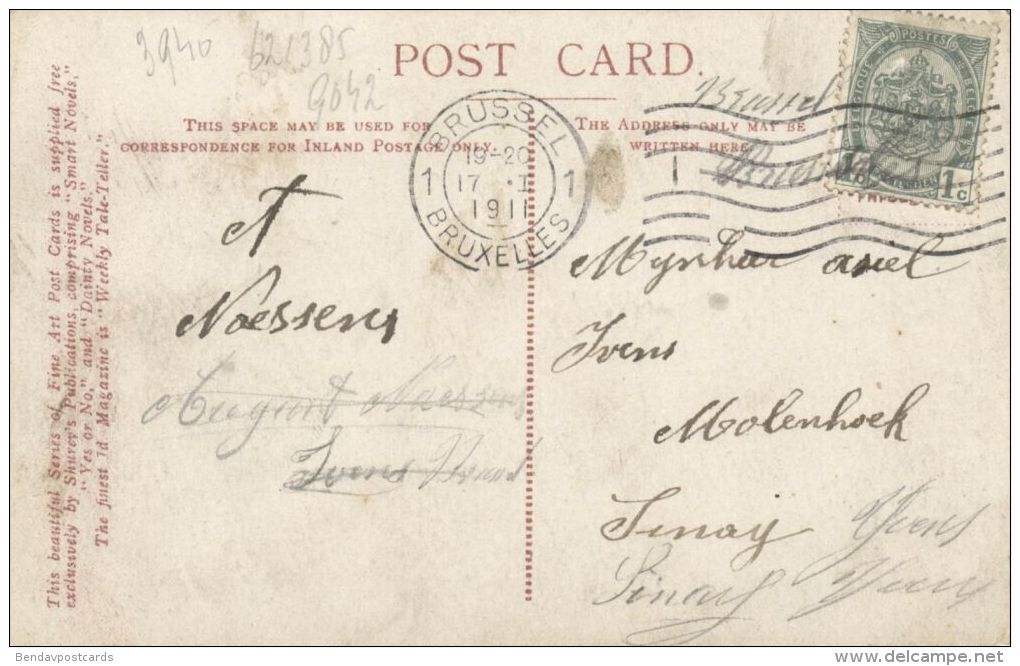 3940 621385
9042
POST CARD.
THIS SPACE MAY BE USED FOR
CORRESPONDENCE FOR INLAND POSTAGE ONLY.
THE ADDRESS ONLY MAY BE
WRITTEN HERE.
BRUSSEL
19-20
1 17 · I 1
1911
BRUXELLES
POSTES
1 1c
Brussel
A
Naessens
August Naessens
Ivens
Mynheer
Ivens
Molenhoek
Sinay
Sinay
This beautiful Series of Fine Art Post Cards is supplied free
exclusively by Shurey's Publications, comprising "Smart Novels,"
"Yes or No," and "Dainty Novels."
The finest 1d Magazine is "Weekly Tale-Teller."
Bendavpostcards
delcampe.net